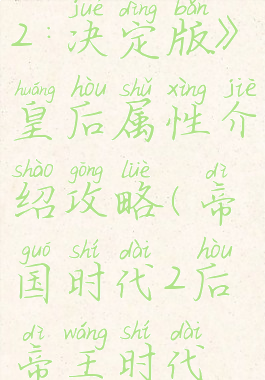 jué dìng bǎn
2：决定版》
huáng hòu shǔ xìng jiè
皇后属性介
shào gōng lüè dì
绍攻略(帝
guó shí dài hòu
国时代2后
dì wáng shí dài
帝王时代